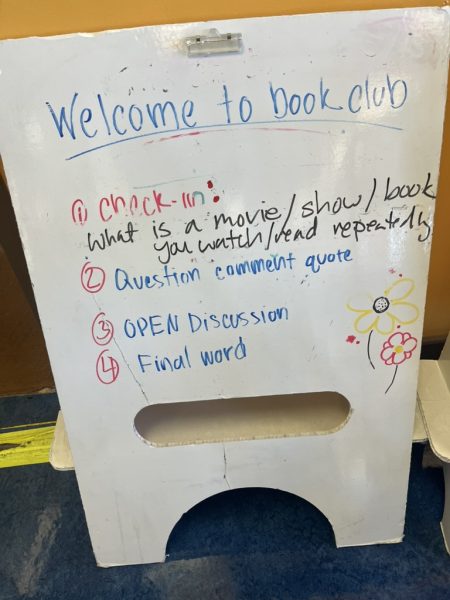 Welcome to book club
① Check-in:
What is a movie/show/book
you watch/read repeatedly
② Question comment quote
③ OPEN Discussion
④ Final word